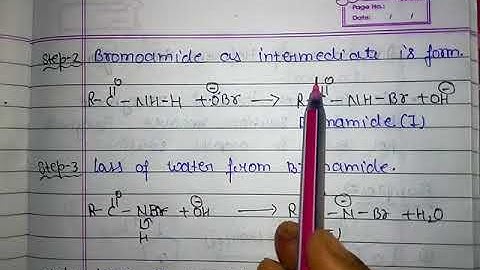 Page No.:
Date: / /
Step-2 Bromoamide as intermediate is form.
O
R-C-NH-H + ⊖OBr → R-C-NH-Br + OH⊖
amide (I)
Step-3 Loss of water from Bromamide.
O
R-C-NBr + ⊖OH → R N⊖-Br + H₂O
H